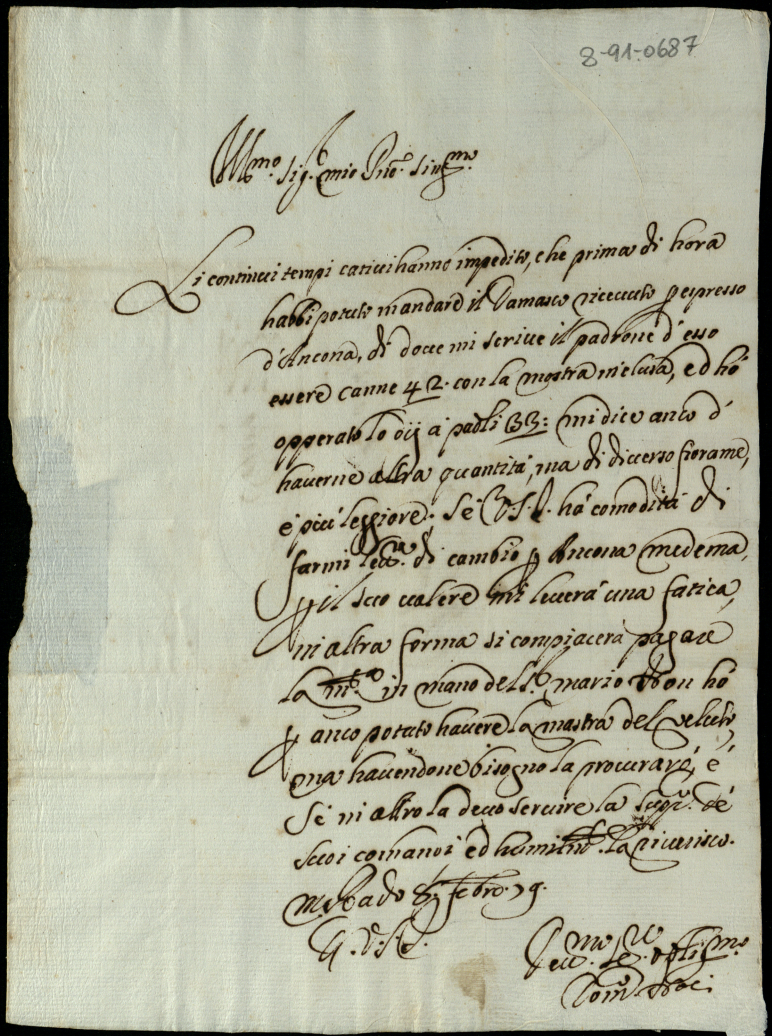 8-91-0687
Ill.mo Sig.r mio P'rone Sing.mo
Li continui tempi cativi hanno impedito, che prima di hora
habbi potuto mandare il Damasco ricevuto p espresso
d'Ancona, di dove mi scrive il padrone d'esso
essere canne 42. con la mostra inclusa, ed hò
opperato lo dij a paoli 33: mi dice anco d'
haverne altra quantità, ma di diverso fiorame,
è più leggiore. Se V.S.I. hà comodità di
farmi lett.ra di cambio p Ancona medema,
p il suo valere mi leverà una fatica,
in altra forma si compiacerà pagare
la in mano del S.r Mario Non hò
p anco potuto havere la mostra del veluto,
ma havendone bisogno la procurarò, è
Se in altro la devo servire la supp.co dé
suoi comandi ed humilm.te la riverisco.
8 Febro 79.
D.V.S.I.
oblig.mo